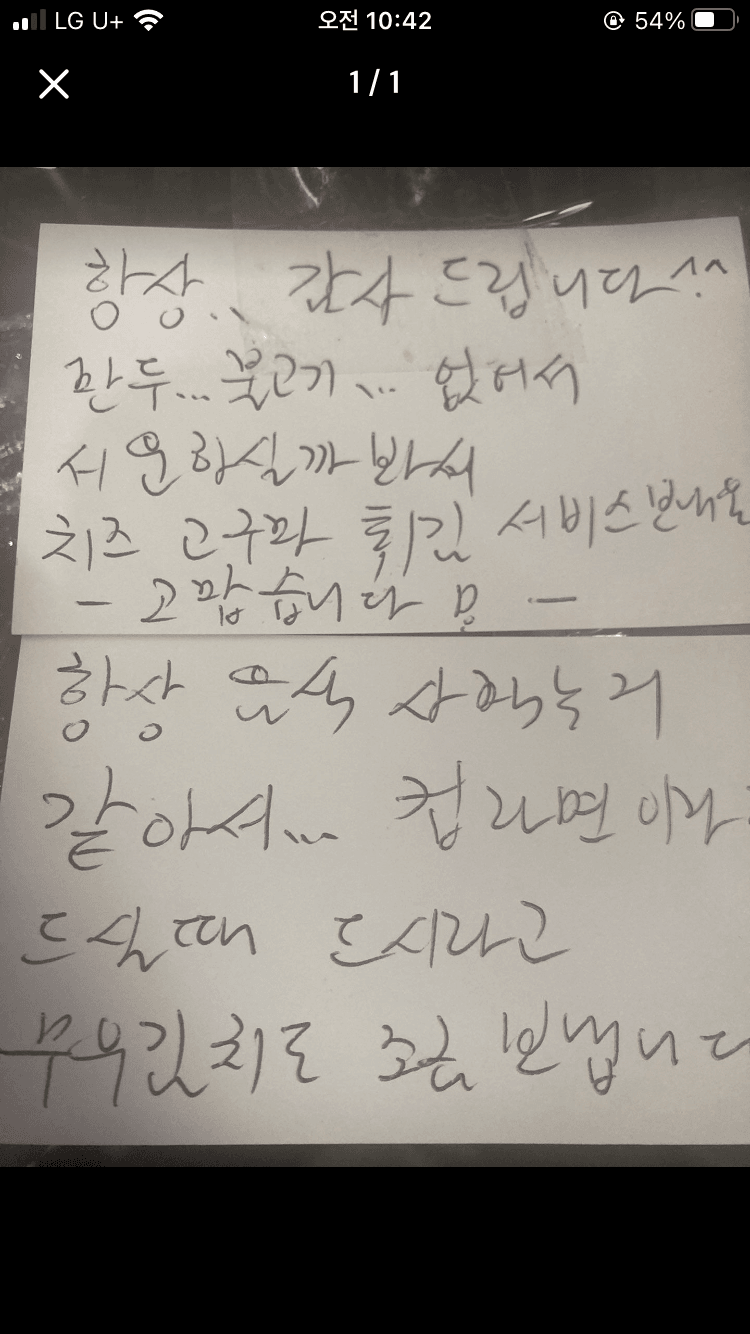 LG U+ 오전 10:42 54%
1 / 1
항상.. 감사 드립니다^^
만두...불고기... 없어서
서운하실까봐서
치즈 고구마 튀김 서비스
- 고맙습니다 -
항상 음식
같아서... 컵라면이라
드실때 드시라고
무우김치도 조금 보냅니다